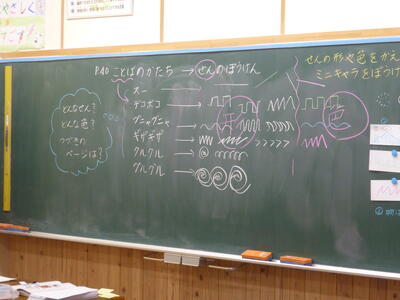 やさしく
P.40 ことばのかたち → せんのぼうけん
せんの形や色をかえ
ミニキャラをぼうけ
スー
デコボコ →
グニャグニャ →
ギザギザ →
クルクル →
グルグル →
形
色
どんなせん?
どんな色?
つづきの
ページは?